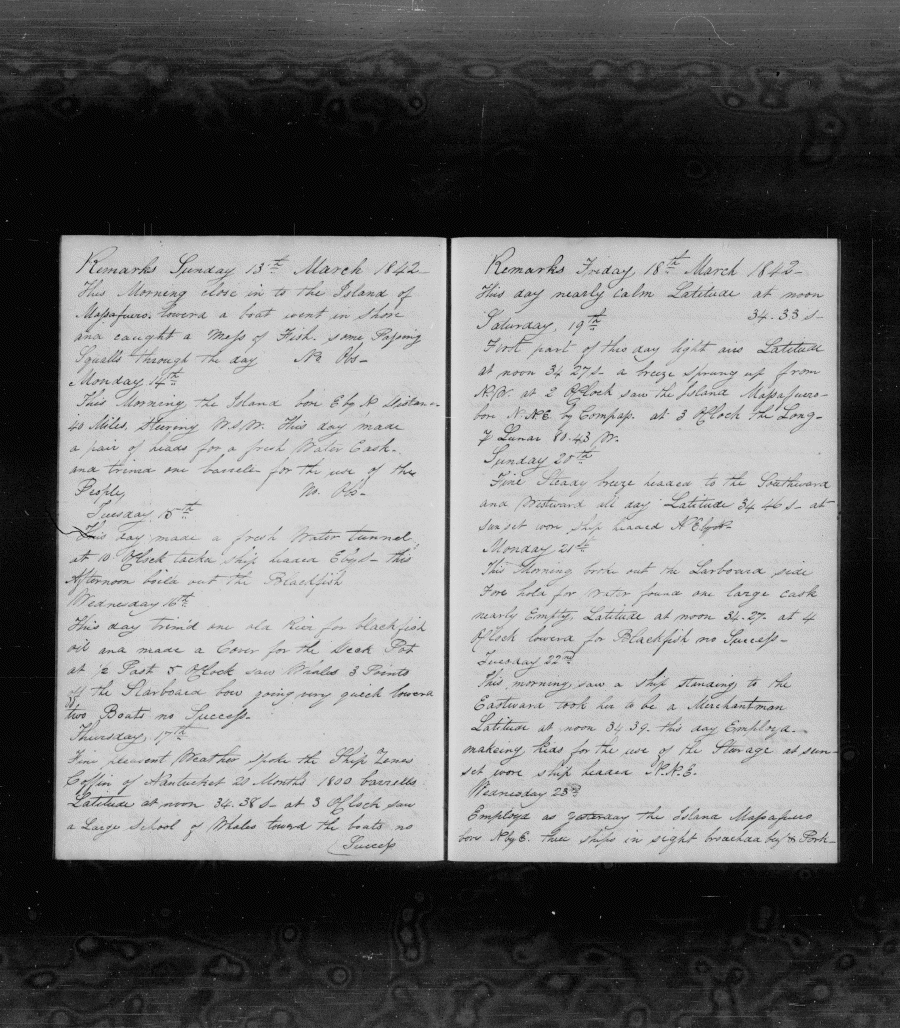 Remarks Sunday 13th March 1842-
This Morning close in to the Island of
Massafuero. lowerd a boat went in Shore
and caught a Mess of Fish. some Passing
Squalls through the day No Obs-
Monday 14th
This Morning the Island bore E by N Distance
40 Miles, Steering W.S.W. This day made
a pair of heads for a fresh Water Cask.
and trimd one barrele for the use of the
People No. Obs-
Tuesday 15th
This Day made a fresh Water tunnel,
at 10 OClock tackd ship headed E by S- this
Afternoon boild out the Blackfish
Wednesday 16th
This day trim'd one old Rier for blackfish
oil and made a Cover for the Deck Pot
at 1/2 Past 5 OClock saw Whales 3 Points
off the Starboard bow going very queek lowerd
two Boats no Success.
Thursday 17th
Fine pleasent Weather spoke the Ship Zenas
Coffin of Nantucket 20 Months 1800 barrells
Latitude at noon 34.38 S- at 3 OClock saw
a Large School of Whales towerd the boats no
Success
Remarks Friday 18th March 1842-
This day nearly calm Latitude at noon
34.33 S-
Saturday, 19th
First part of this day light airs Latitude
at noon 34 27 S- a breeze sprung up from
N.W. at 2 OClock saw the Island Massafuero-
bore N.N.E. by Compass. at 3 OClock the Long-
y Lunar 80.43 W.
Sunday 20th
Fine Steady breeze headed to the Southward
and Westward all day Latitude 34 46 S- at
sunset wore ship headed N E by N
Monday 21st
This Morning broke out the Larboard side
Fore hold for water found one large cask
nearly Empty, Latitude at noon 34.27. at 4
OClock lowerd for Blackfish no Success-
Tuesday 22nd
This morning, saw a ship standing to the
Eastward took her to be a Merchantman
Latitude at noon 34.39. this day Employd
makeing Kids for the use of the Sterage at sun-
set wore ship headed N.N.E.
Wednesday 23rd
Employd as yesterday the Island Massafuero
bore N by E. thee ships in sight broachd beef & Pork-